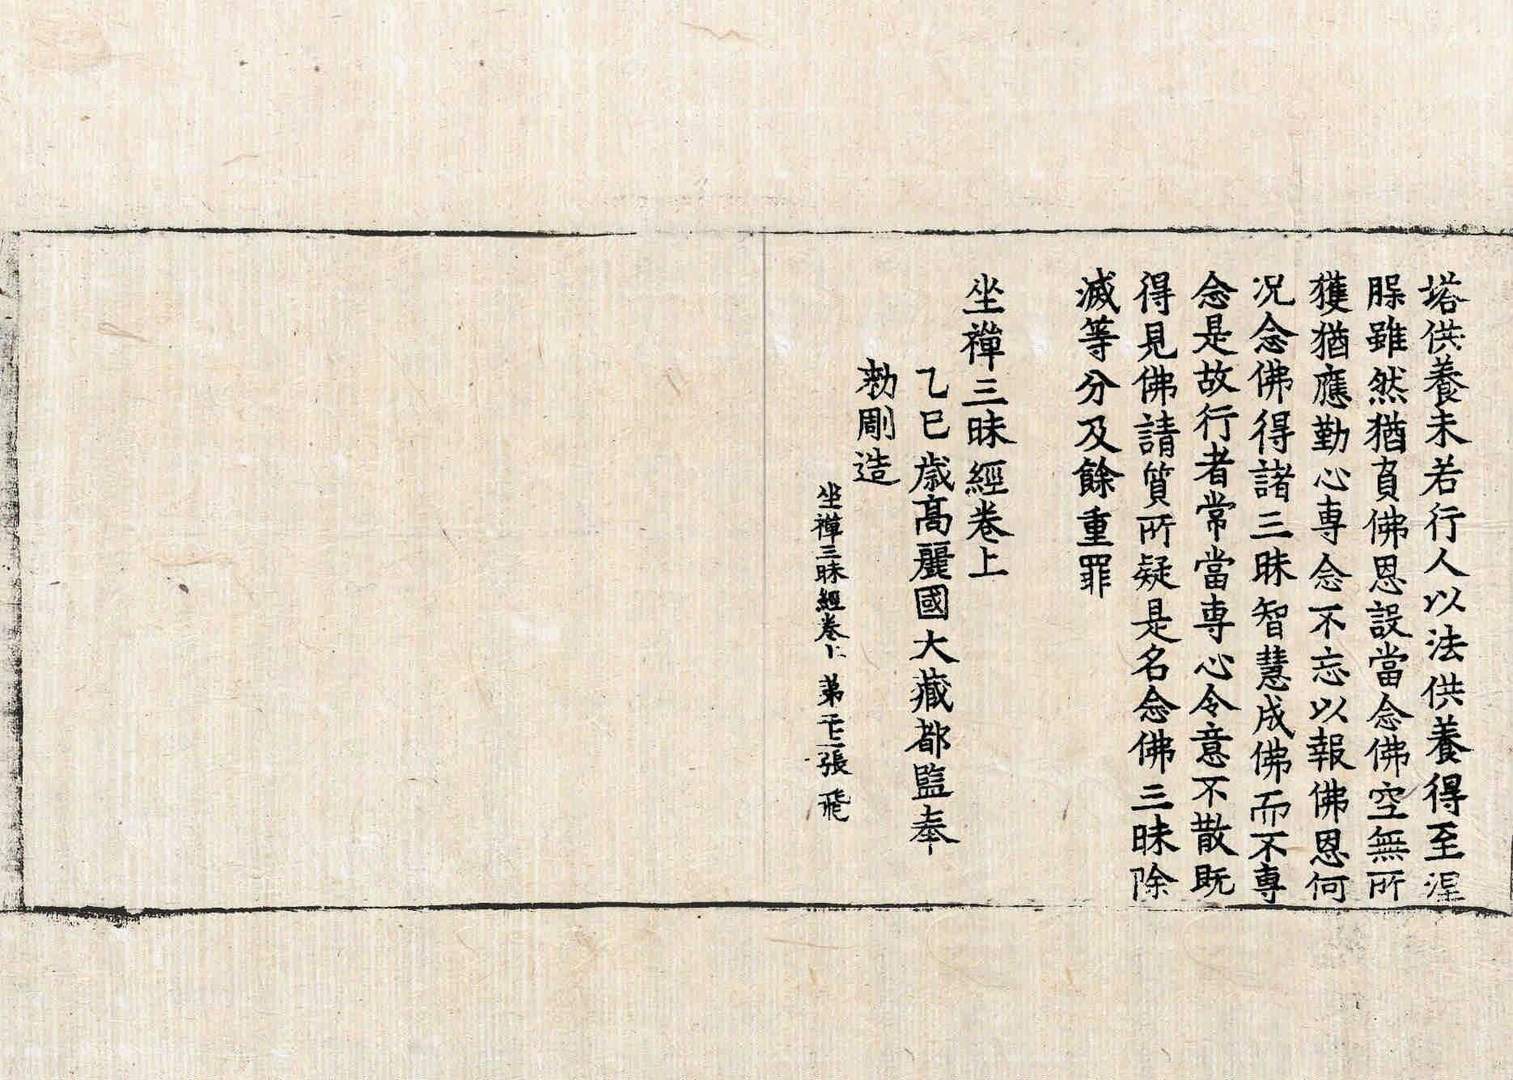 塔供養未若行人以法供養得至涅
雖然猶負佛恩設當念佛空無所
獲猶應勤心専念不忘以報佛恩何
况念佛得諸三昧智慧成佛而不専
念是故行者常當専心令意不散既
得見佛請質所疑是名念佛三昧除
滅等分及餘重罪
坐禪三昧經卷上
乙巳歲高麗國大藏都監奉
勅彫造
坐禪三昧經卷上 第張 飛